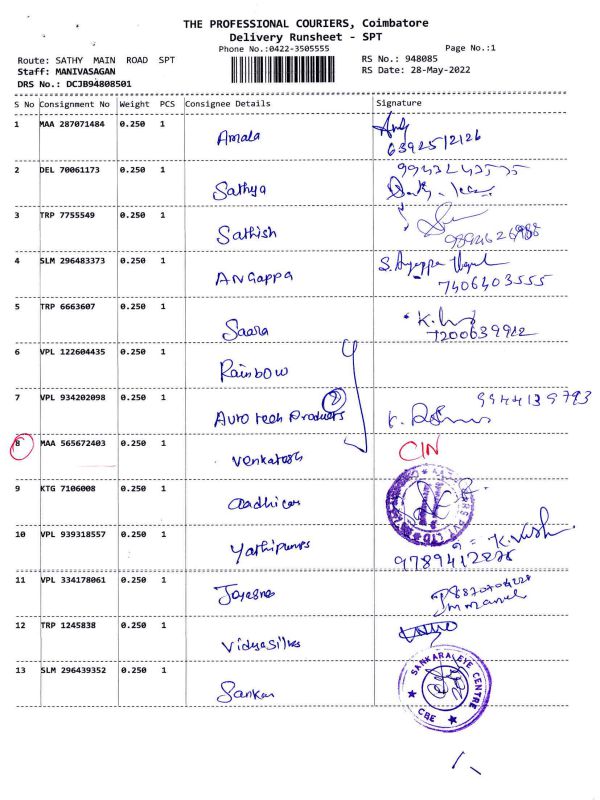 THE PROFESSIONAL COURIERS, Coimbatore
Delivery Runsheet - SPT
Phone No.:0422-3505555
Page No.:1
Route: SATHY MAIN ROAD SPT
RS No.: 948085
Staff: MANIVASAGAN
RS Date: 28-May-2022
DRS No.: DCJB94808501
S No Consignment No Weight PCS Consignee Details Signature
1 MAA 287071484 0.250 1
Amala
6392512126
2 DEL 70061173 0.250 1
Sathya
3 TRP 7755549 0.250 1
Sathish
4 SLM 296483373 0.250 1
ANGappa
7406403555
5 TRP 6663607 0.250 1
Saara
7200639912
6 VPL 122604435 0.250 1
Rainbow
7 VPL 934202098 0.250 1
9944139793
Auto tech Products
8 MAA 565672403 0.250 1
Venkatesh
CIN
9 KTG 7106008 0.250 1
Aadhicar
10 VPL 939318557 0.250 1
K. 
9789412876
11 VPL 334178061 0.250 1
12 TRP 1245838 0.250 1
13 SLM 296439352 0.250 1
Sankar
SANKARA EYE CENTRE
CBE